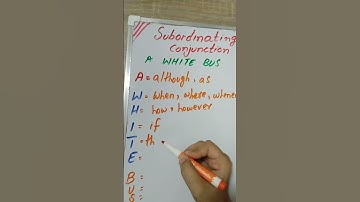 Subordinating
conjunction
A WHITE BUS
A = although, as
W = when, where, whenever
H = how, however
I = if
T = th
E =
B =
U =
S =